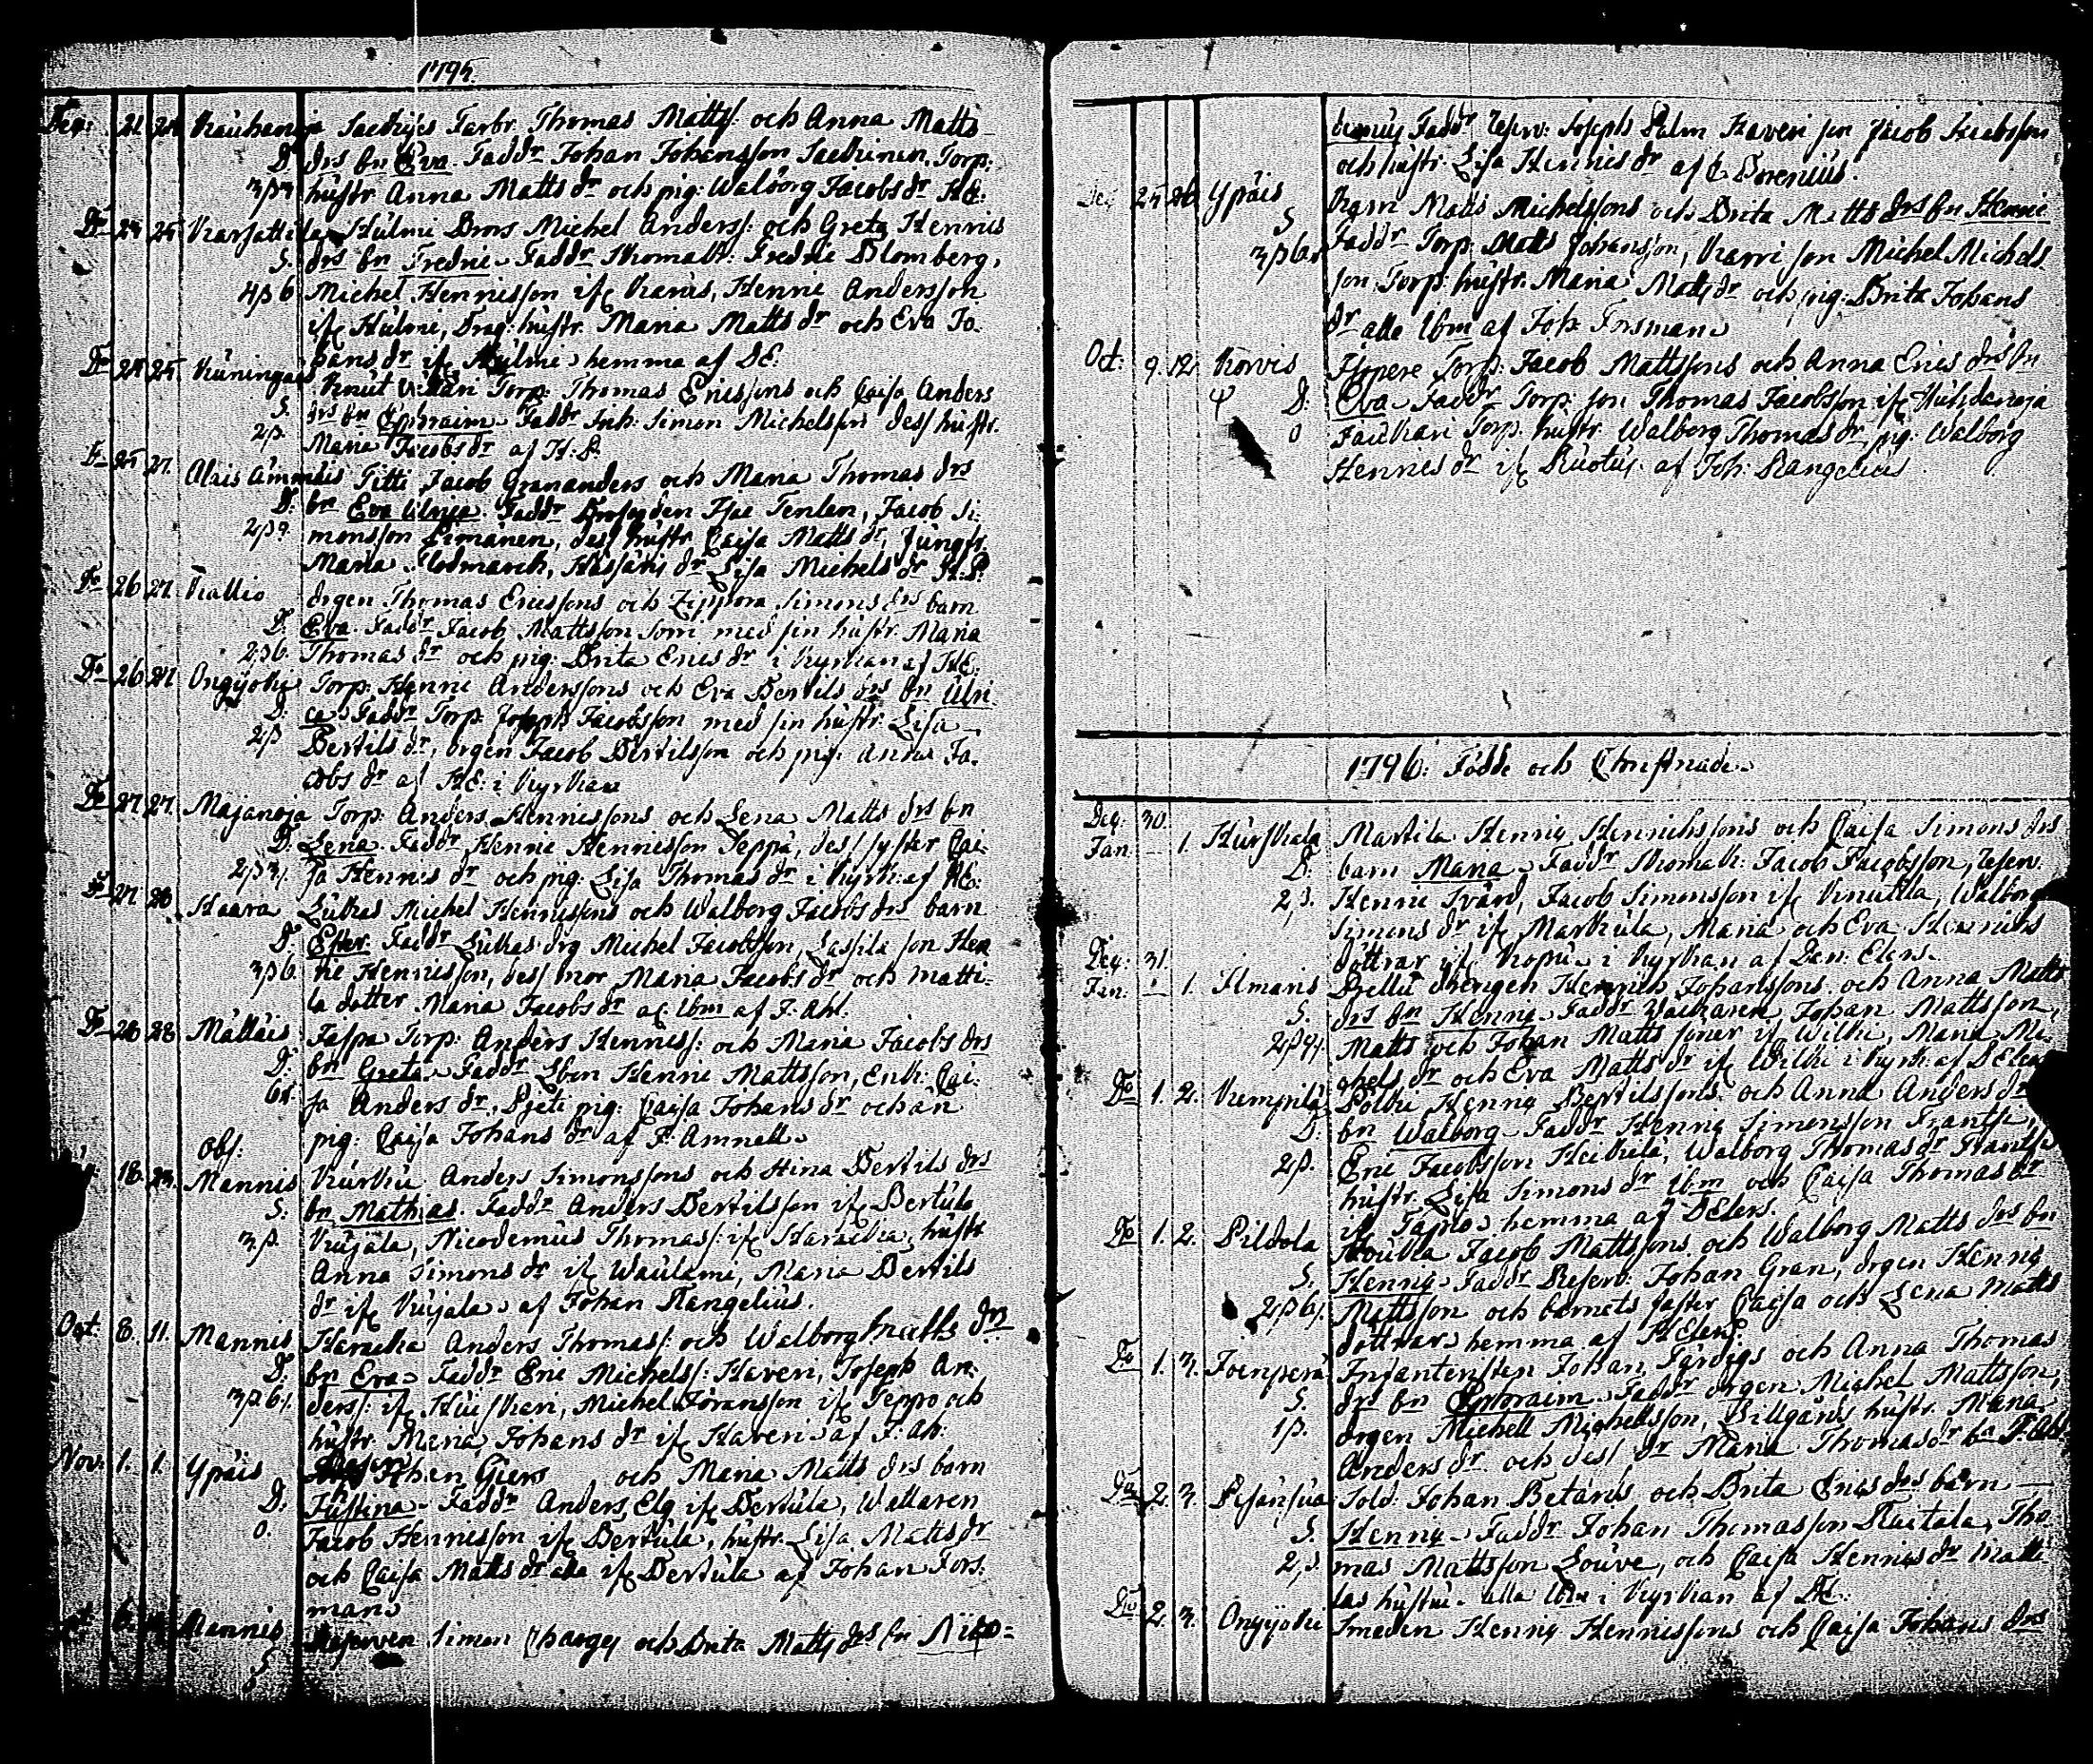 1795.
Deq: 21 24 Rauhanoja Saedrijes Farbr. Thomas Matts: och Anna Matts
D. drs bn Eva. Faddr Johan Johansson Saedrinen, Torp:
3ß4 hustr. Anna Matts dr och pig: Walborg Jacobs dr HE:
Do 24 25 Karsattila Hulmi Brors Michel Anderss: och Greta Hennis
S. drs bn Fredric. Faddr Fredric Blomberg,
4ß6 Michel Hennisson if Henric Andersson
if Hulmi, Drag: hustr. Maria Matts dr och Eva Jo-
hans dr if Hulmi hemma af DE.
Do 24 25 Kuningas Knut Torp: Thomas Ericssons och Caisa Anders
S. drs bn Ephraim Faddr Simon Michelsson dess hustr.
2ß. Maria Jacobs dr af H:E.
Do 25 27. Titti Jacob Grananders och Maria Thomas drs
D. bn Eva Ulrica. Faddr Jacob Si-
2ß9. monsson Simanen, dess hustr. Caisa Matts dr, Jungfr.
Maria Flodmarck, dr Lisa Michels dr H:E:
Do 26 27. Kallio drgen Thomas Ericssons och Zippora Simons drs barn
D. Eva. Faddr Jacob Mattsson som med sin hustr. Maria
2ß6. Thomas dr och pig: Brita Erics dr i Kyrkan af HE:
Do 26 27 Ongijoki Torp: Henric Anderssons och Eva Bertils drs bn Ulri-
D. ca. Faddr Torp: Joseph Jacobsson med sin hustr. Lisa
2ß Bertils dr, drgen Jacob Bertilsson och pig: Anna Ja-
cobs dr af HE: i Kyrkan
Do 27 27. Majanoja Torp: Anders Hennissons och Lena Matts drs bn
D. Lena. Faddr Henric Hennisson Seppä, dess syster Cai-
2ß3. sa Hennis dr och pig: Lisa Thomas dr i Kyrk: af HE:
Do 27 28 Haara Luckas Michel Hennissons och Walborg Jacobs drs barn
D. Ester. Faddr Luckas drg Michel Jacobsson, son Hen
3ß6. ric Hennisson, dess mor Maria Jacobs dr och Matti-
la dotter Maria Jacobs dr af Ibm af F. Ahl.
Do 28 28 Mälläis Jaspa Torp: Anders Henniss: och Maria Jacobs drs
D. bn Greta. Faddr Henric Mattsson, Enk: Cai-
6r. sa Anders dr, pig: Caisa Johans dr och än
pig: Caisa Johans dr af F. Amnell.
Obs:
18. 23. Mannis Kurkki Anders Simonssons och Stina Bertils drs
S. bn Mathias. Faddr Anders Bertilsson if Bertula
3ß. Kuijala, Nicodemus Thomass: if Haracka, hustr
Anna Simons dr if Waulami, Maria Bertils
dr if Kuijala. af Johan Rangelius.
Oct: 8. 11. Mannis Haracka Anders Thomass: och Walborg Matts drs
D. bn Eva. Faddr Eric Michelss: Haveri, Joseph An-
3ß6. derss: if Huiskan, Michel Göransson if Seppo och
hustr. Maria Johans dr if Haveri. af F. Ah:
Nov: 1. 1. Ypäis Johan Giers och Maria Matts drs barn
D. Justina. Faddr Anders Elg if Bertula, Wallaren
0. Jacob Hennisson if Bertula, hustr. Lisa Matts dr
och Caisa Matts dr alla if Bertula af Johan Fors-
man.
Mannis Reserven Simon Charges och Brita Matts drs bn Nico-
S
demus Faddr Reserv: Joseph Palm Haveri son Jacob Jacobsson
och hustr. Lisa Hennis dr af C Dorenius.
Deq 25 26 Ypäis Karri Matts Michelssons och Brita Matts drs bn Henric
S Faddr Torp: Matts Johansson, Karri son Michel Michels-
3ß6 son, Torp: hustr. Maria Matts dr och pig: Brita Johans
dr alla Ibm af Joh: Forsman
Oct: 9. 12. Korvis Hopere Torp: Jacob Mattssons och Anna Erics drs bn
D. Eva. Faddr Torp: son Thomas Jacobsson if
0 Torp: hustr. Walborg Thomas dr, pig: Walborg
Hennis dr if af Joh: Rangelius
1796: Födde och Christnade.
Deq: 30.
Jan. – 1. Hurskala Martila Henriq Henrichssons och Caisa Simons drs
D. barn Maria. Faddr Jacob Jacobsson, Reserv.
2ß. Henric Svärd, Jacob Simonsson if Knuutila, Walborg
Simons dr if Markula, Maria och Eva Henrichs
döttrar if i Kyrkan af Dan: Elers.
Deq: 31.
Jan: 1. Ilmaris Prellu drengen Henrich Johanssons och Anna Matts
S. drs bn Henric Faddr Johan Mattsson,
2ß9. Matts och Johan Matts söner if Wilki, Maria Mi-
chels dr och Eva Matts dr if Wilki i Kyrk: af D Elers
Do 1. 2. Krempilä Polki Henriq Bertilssons och Anna Anders drs
D. bn Walborg Faddr Henriq Simonsson Frantsi,
2ß. Eric Jacobsson Heikkilä, Walborg Thomas dr Frantsi
hustr. Lisa Simons dr Ibm och Caisa Thomas dr
if Tapio. hemma af D Elers.
Do 1. 2. Pildola Houkka Jacob Mattssons och Walborg Matts drs bn
S. Henriq. Faddr Reserv. Johan Gran, drgen Henriq
2ß6. Mattsson och barnets faster Caisa och Lena Matts
döttrar hemma af H Elers.
Do 1. 3. Joenperä Infanteristen Johan Färdigs och Anna Thomas
S. drs bn Ephraim. Faddr drgen Michel Mattsson,
1ß. drgen Michell Michellsson, Billgårds hustr. Maria
Anders dr och dess dr Maria Thomas dr F. Ahl
Do 2. 3. Pesänsuo Sold: Johan Betards och Brita Erics drs barn
S. Henriq. Faddr Johan Thomasson Rautala, Tho-
2ß. mas Mattsson Louve, och Caisa Hennis dr Matti-
las hustru. alla Ibm i Kyrkan af DE.
Do 2. 3. Ongijoki Smeden Henriq Hennissons och Caisa Johans drs